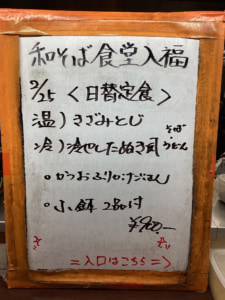 和そば食堂入福
2/25 <日替定食>
温)きざみとじ
そば・うどん
冷)冷やしたぬき
・かつおふりかけごはん
・小鉢2品付
¥900-
=入口はこちら=>